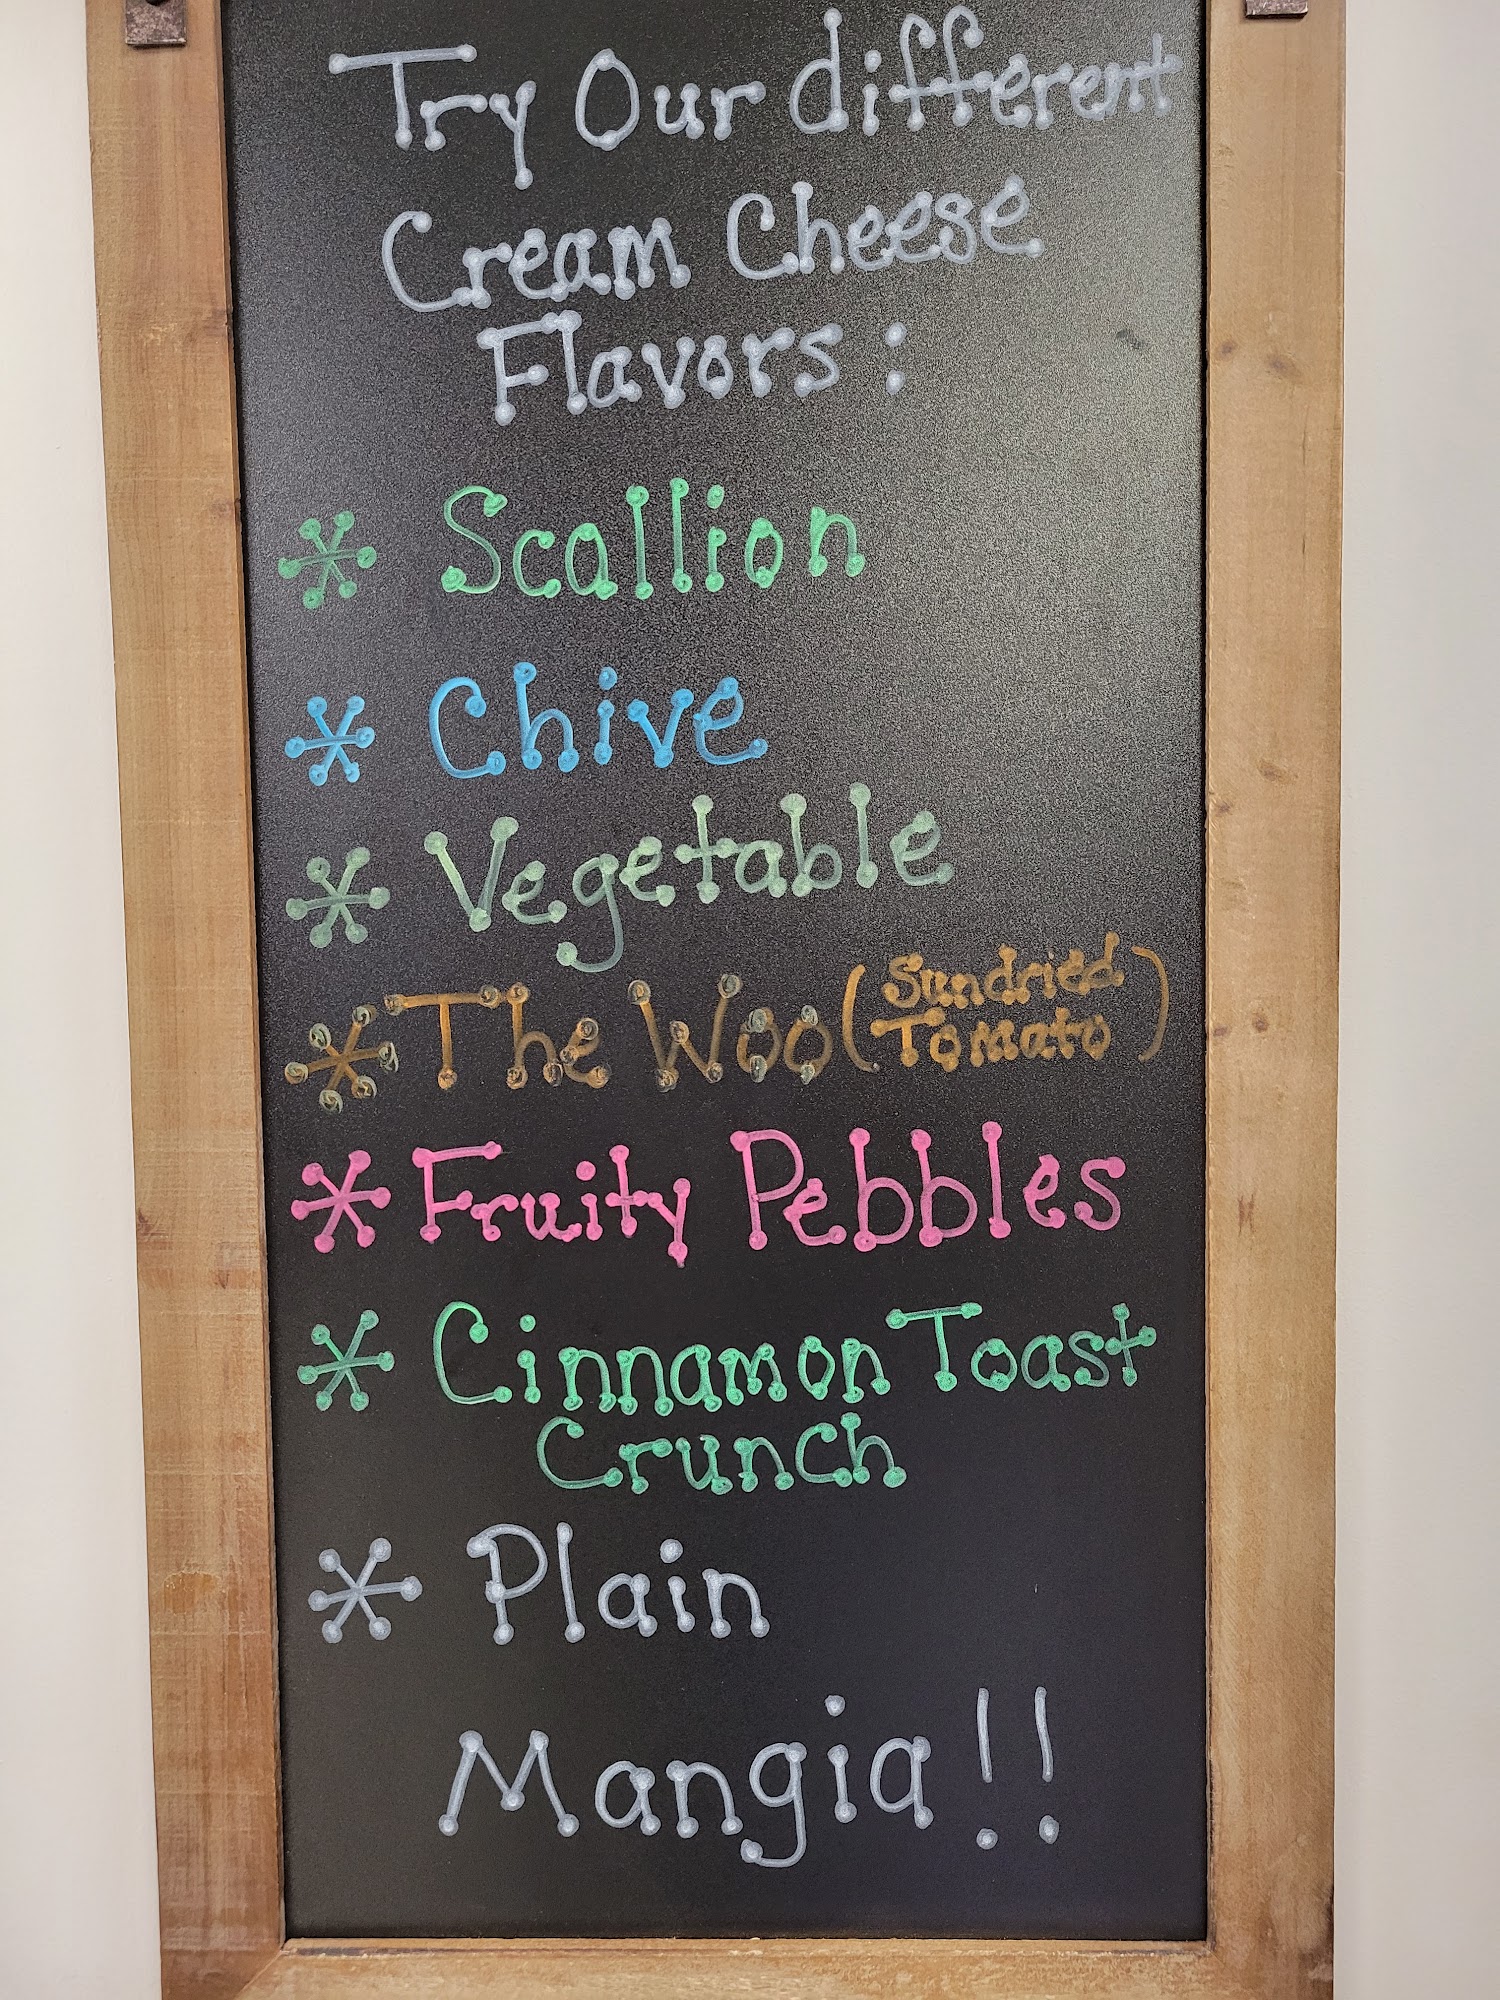 Try Our different
Cream Cheese
Flavors:
* Scallion
* Chive
* Vegetable
* The Woo (Sundried
Tomato)
* Fruity Pebbles
* Cinnamon Toast
Crunch
* Plain
Mangia!!